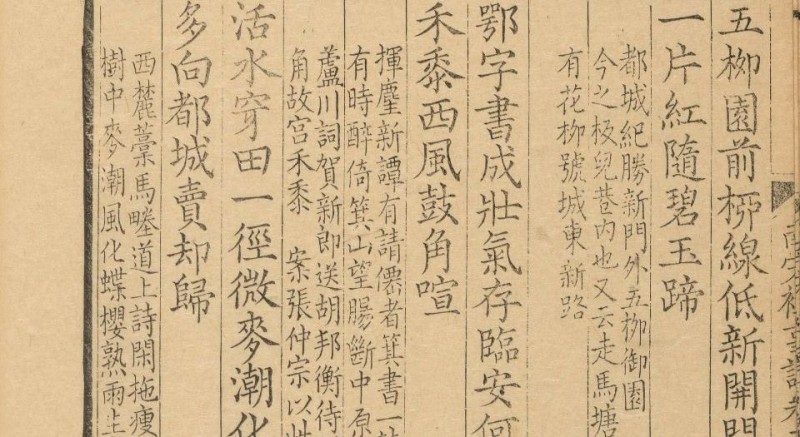 南宋雜事詩卷
五栁園前桞線低新開門
一片紅隨碧玉蹄
都城紀勝新門外五栁御園
今之板兒巷内也又云走馬塘
有花栁號城東新路
鄂字書成壯氣存臨安何
禾黍西風鼓角喧
揮塵新譚有請僊者箕書一
有時醉倚箕山望腸斷中原
蘆川詞賀新郎送胡邦衡待
角故宮禾黍 案張仲宗以
活水穿田一徑微麥潮化
多向都城賣却歸
西麓藁馬塍道上詩閑拖瘦
樹中麥潮風化蝶櫻熟雨生